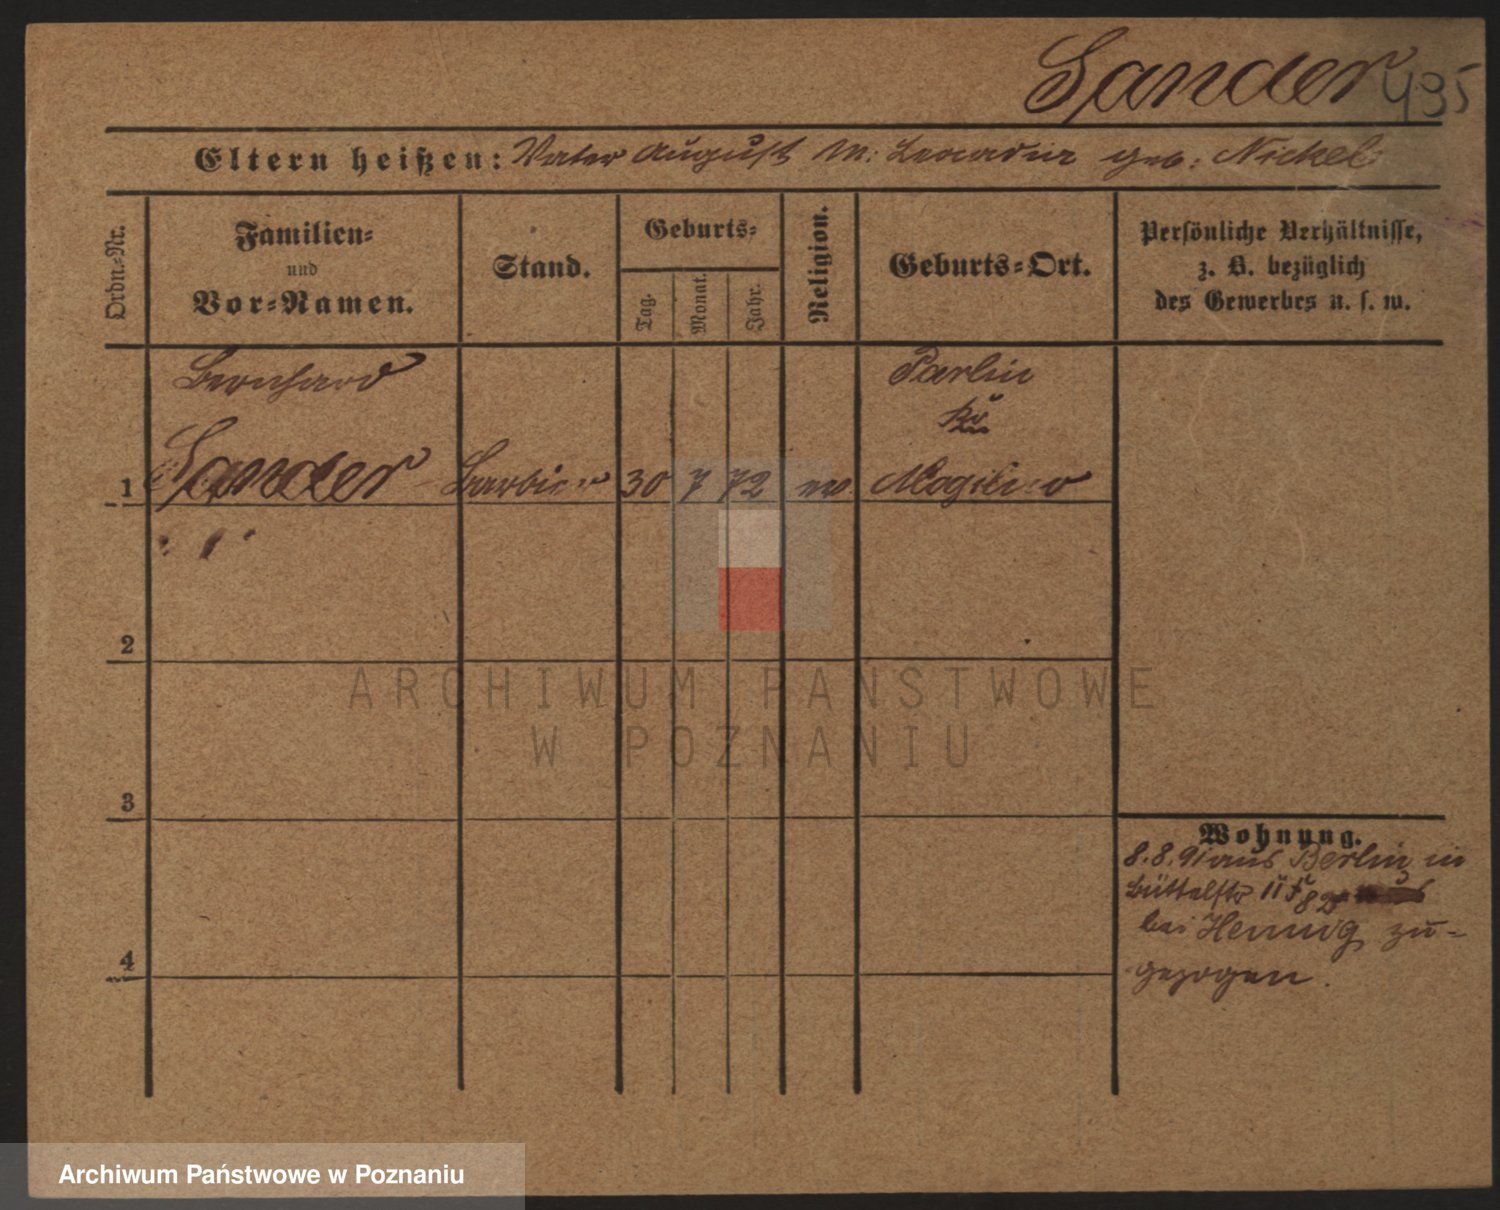 Sander 495
Eltern heißen: Vater August M: Leocadia geb: Nickel
Ordn.-Nr.
Familien-
und
Vor-Namen.
Stand.
Geburts-
Tag.
Monat.
Jahr.
Religion.
Geburts-Ort.
Persönliche Verhältnisse,
z. B. bezüglich
des Gewerbes u. s. w.
Bernhard
Parlin
Kr
1 Sander Barbier 30 7 72 ev. Mogilno
2
3
4
Wohnung.
8.8.91 aus Berlin in
Büttelstr 11
bei Hennig zu-
gezogen.
ARCHIWUM PAŃSTWOWE
W POZNANIU
Archiwum Państwowe w Poznaniu